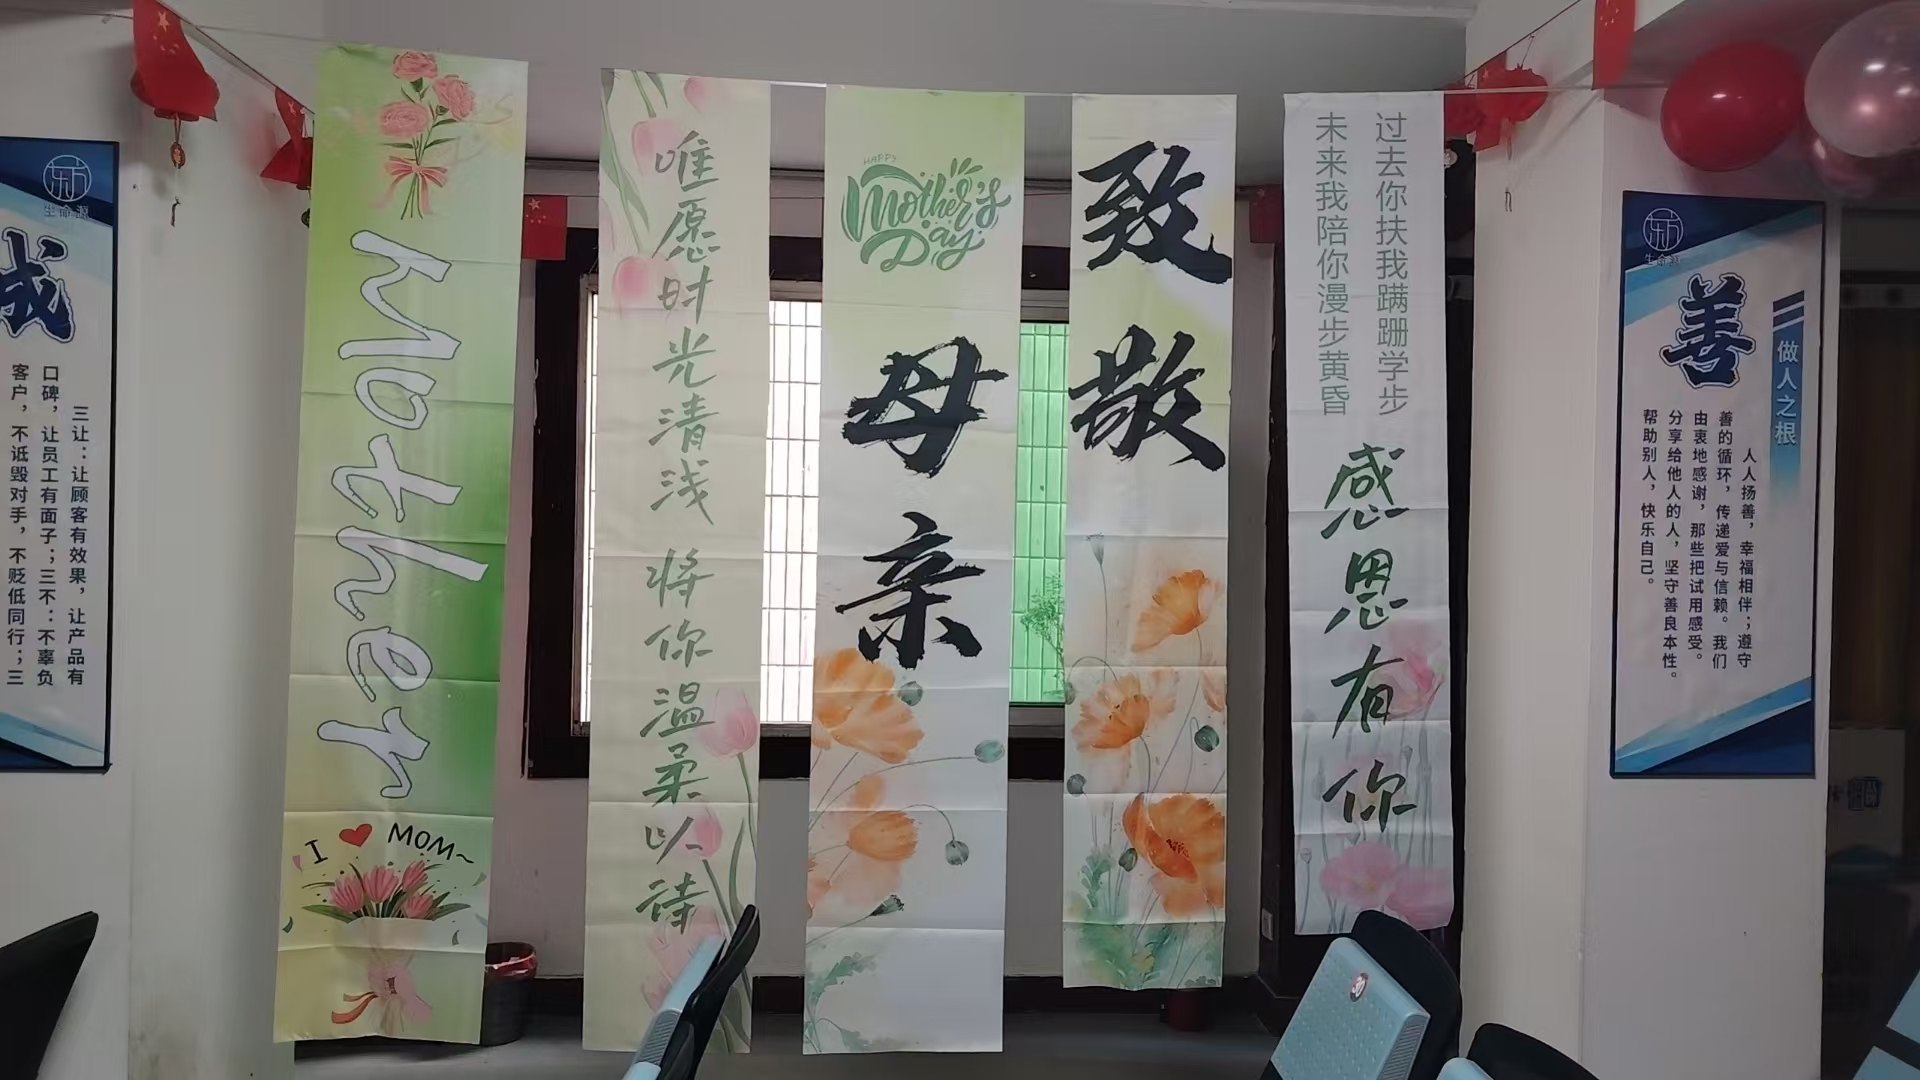 东方
生命源
诚
三让：让顾客有效果，让产品有
口碑，让员工有面子；三不：不辜负
客户，不诋毁对手，不贬低同行；三
Mother
I ❤ MOM~
唯愿时光清浅 将你温柔以待
HAPPY
Mother's
Day
母亲
致敬
过去你扶我蹒跚学步
未来我陪你漫步黄昏
感恩有你
东方
生命源
善
做人之根
人人扬善，幸福相伴；遵守
善的循环，传递爱与信赖。我们
由衷地感谢，那些把试用感受。
分享给他人的人，坚守善良本性。
帮助别人，快乐自己。